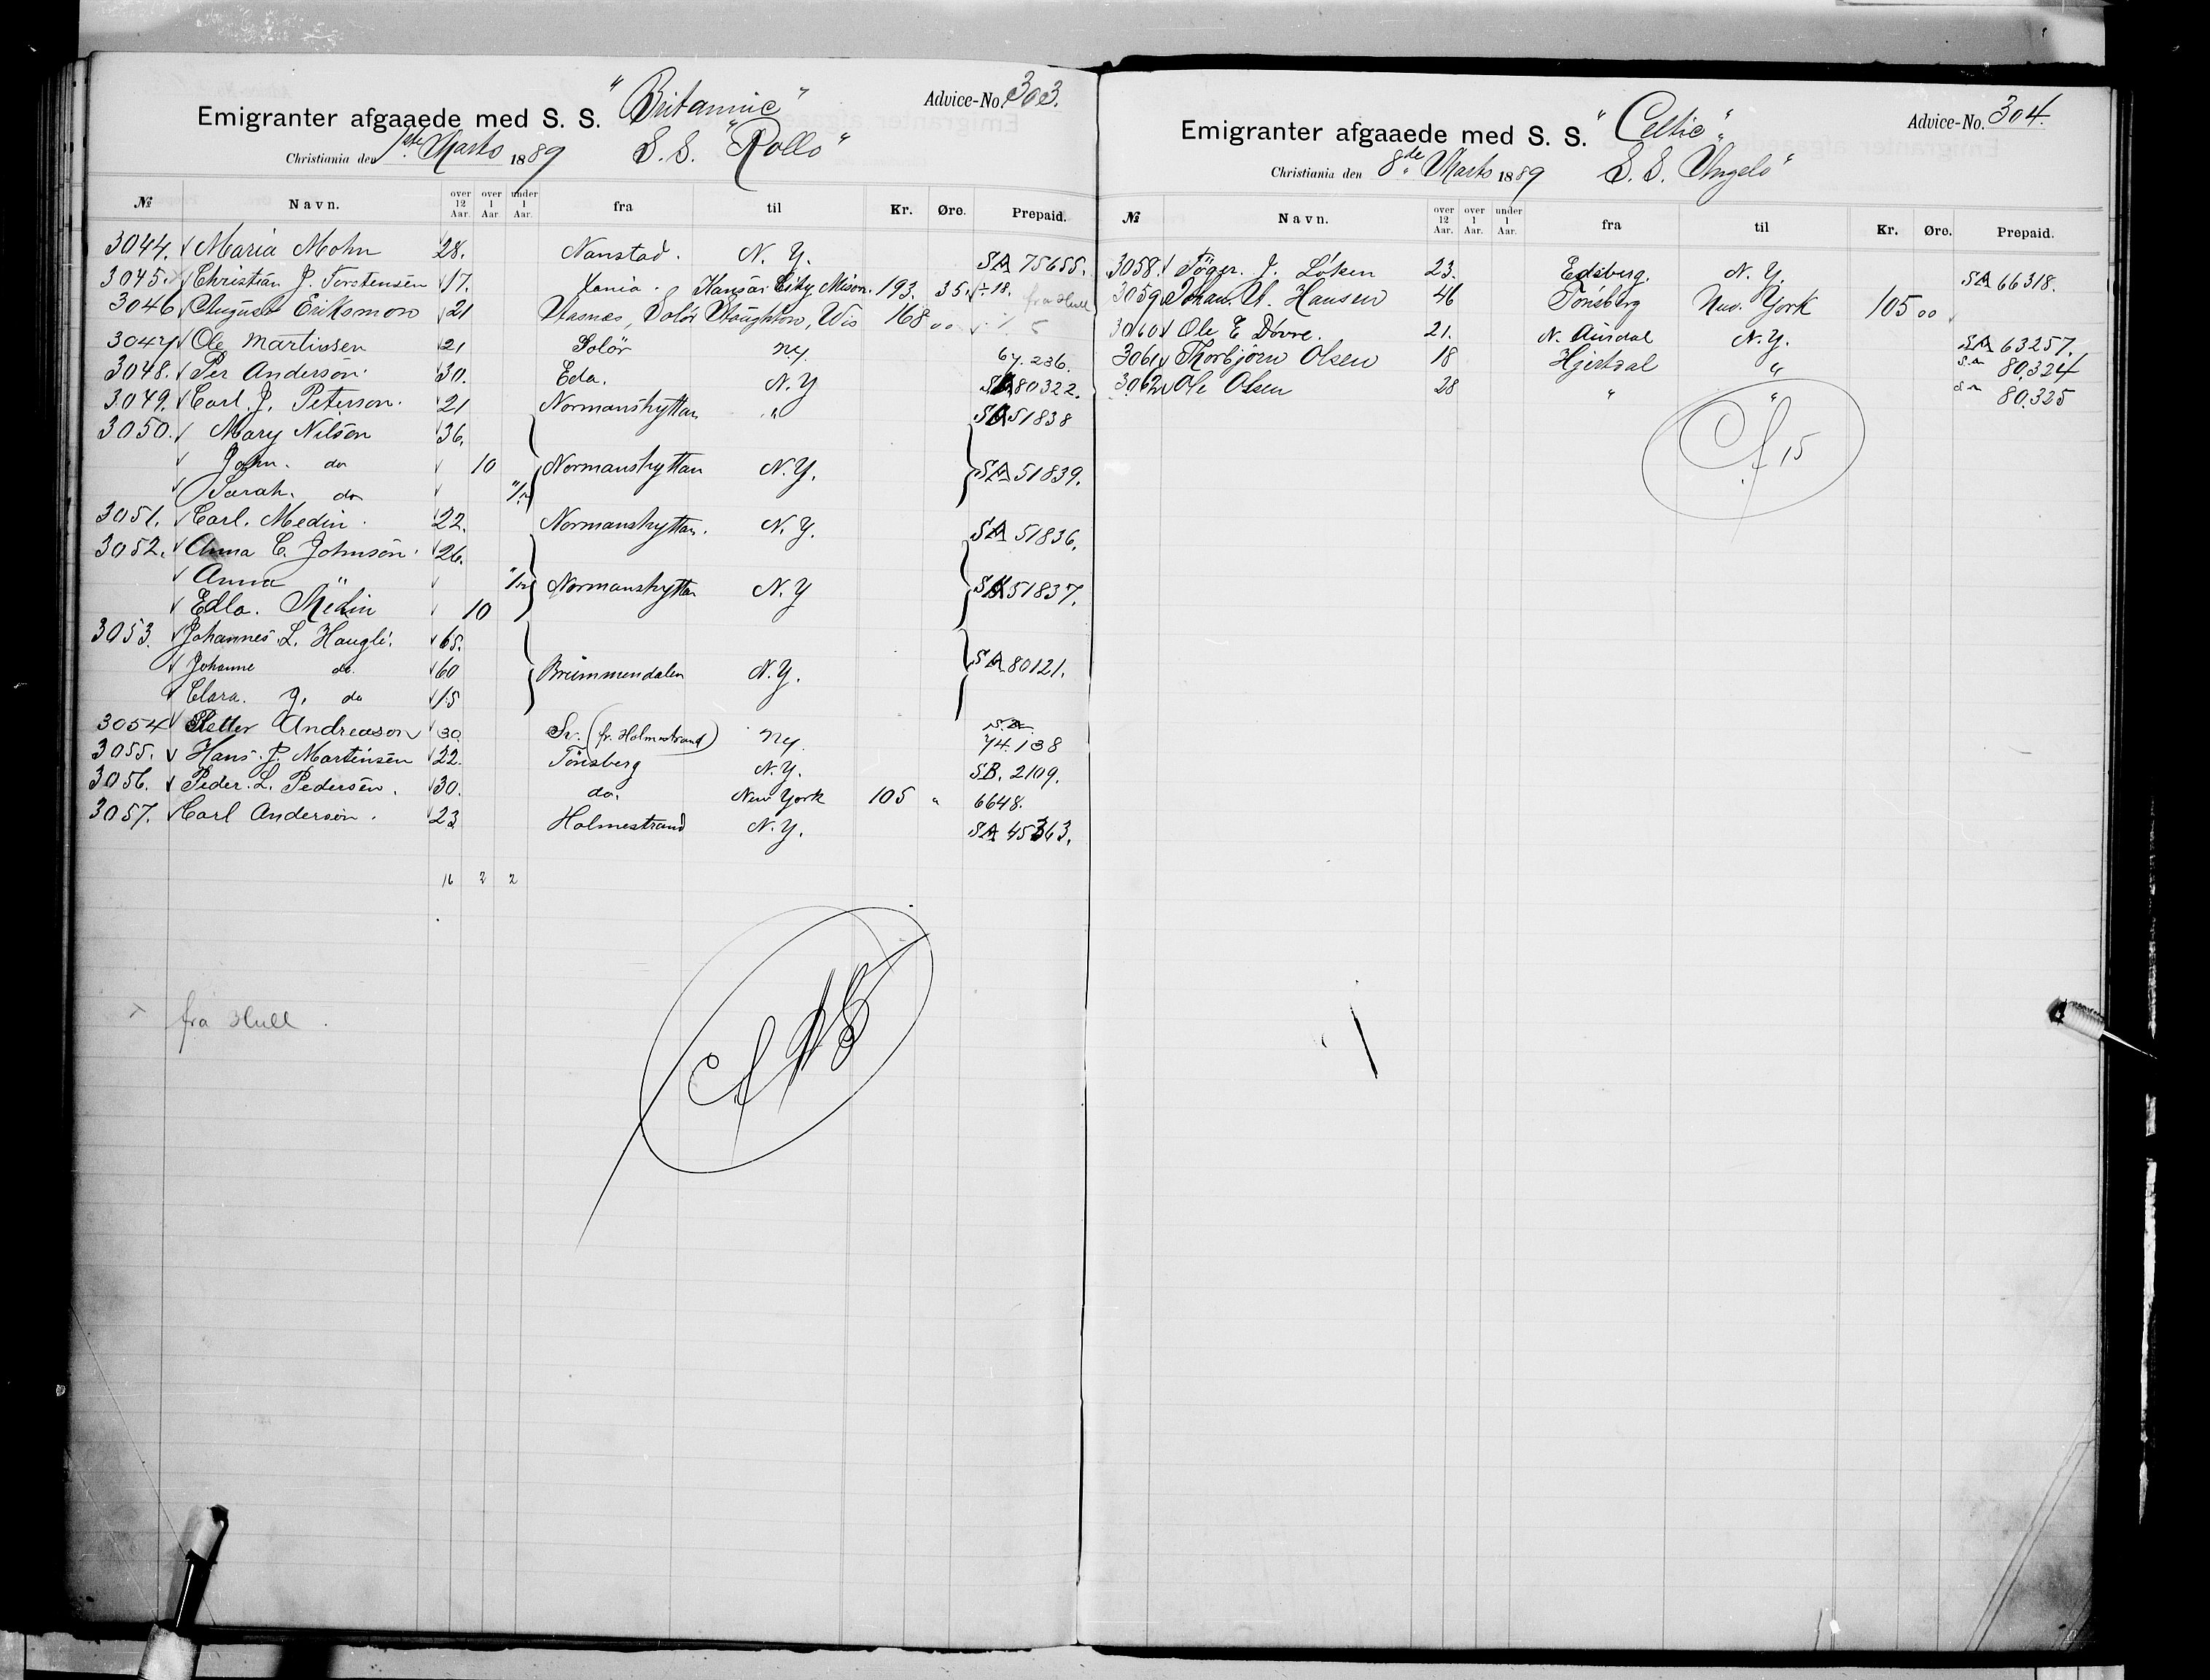 Emigranter afgaaede med S. S. "Britannic" Advice-No. 303.
Christiania den 1ste Marts 1889 S. S. "Rollo"
№ Navn. over 12 Aar. over 1 Aar. under 1 Aar. fra til Kr. Øre. Prepaid.
3044. Maria Mohn 28. Nanstad. N. Y. SA 75655.
3045. Christian J. Torstensen 17. Xania. Kansas City Mison. 193. 35. ÷ 18. fra Hull
3046 August Eriksmon 21 Hasnes, Solör Stoughton, Wis 168 00
3047 Ole Martinsen 21 Solör NY. 67.236.
3048. Per Anderson. 30. Eda. N. Y SA 80322.
3049. Carl. J. Peterson. 21 Normanshyttan " SA 51838
3050. Mary Nilson 36.
John. do 10 Normanshyttan N. Y. SA 51839.
Sarah. do
3051. Carl. Medin. 22. Normanshyttan. N. Y. SA 51836.
3052. Anna C. Johnson. 26.
Anna " Normanshyttan N. Y SA 51837.
Edla. Medin 10
3053. Johannes L. Haugli. 65.
Johanne do. 60 Brummendalen N. Y. SA 80121.
Clara. J. do 15
3054 Petter Andreason 30. Sv. (fr. Holmestrand) NY. S.A. 74.138
3055. Hans. P. Martinsen 22. Tönsberg N. Y. SB. 2109.
3056. Peder. L. Pedersen. 30. do. New York 105 " 6648.
3057. Carl Anderson. 23 Holmestrand N. Y. SA 45363.
16 2 2
fra Hull
Emigranter afgaaede med S. S. "Celtic" Advice-No. 304.
Christiania den 8de Marts 1889 S. S. Angelo"
№ Navn. over 12 Aar. over 1 Aar. under 1 Aar. fra til Kr. Øre. Prepaid.
3058. Töger. J. Löken 23. Edsberg. N. Y. SA 66318.
3059 Johan. A. Hansen 46 Tönsberg New. York 105 00
3060 Ole E Dovre. 21. N. Aurdal N. Y. SA 63257.
3061 Thorbjörn Olsen 18 Hjertdal " SA 80.324
3062 Ole Olsen 28 " " SA 80.325
Cf 15